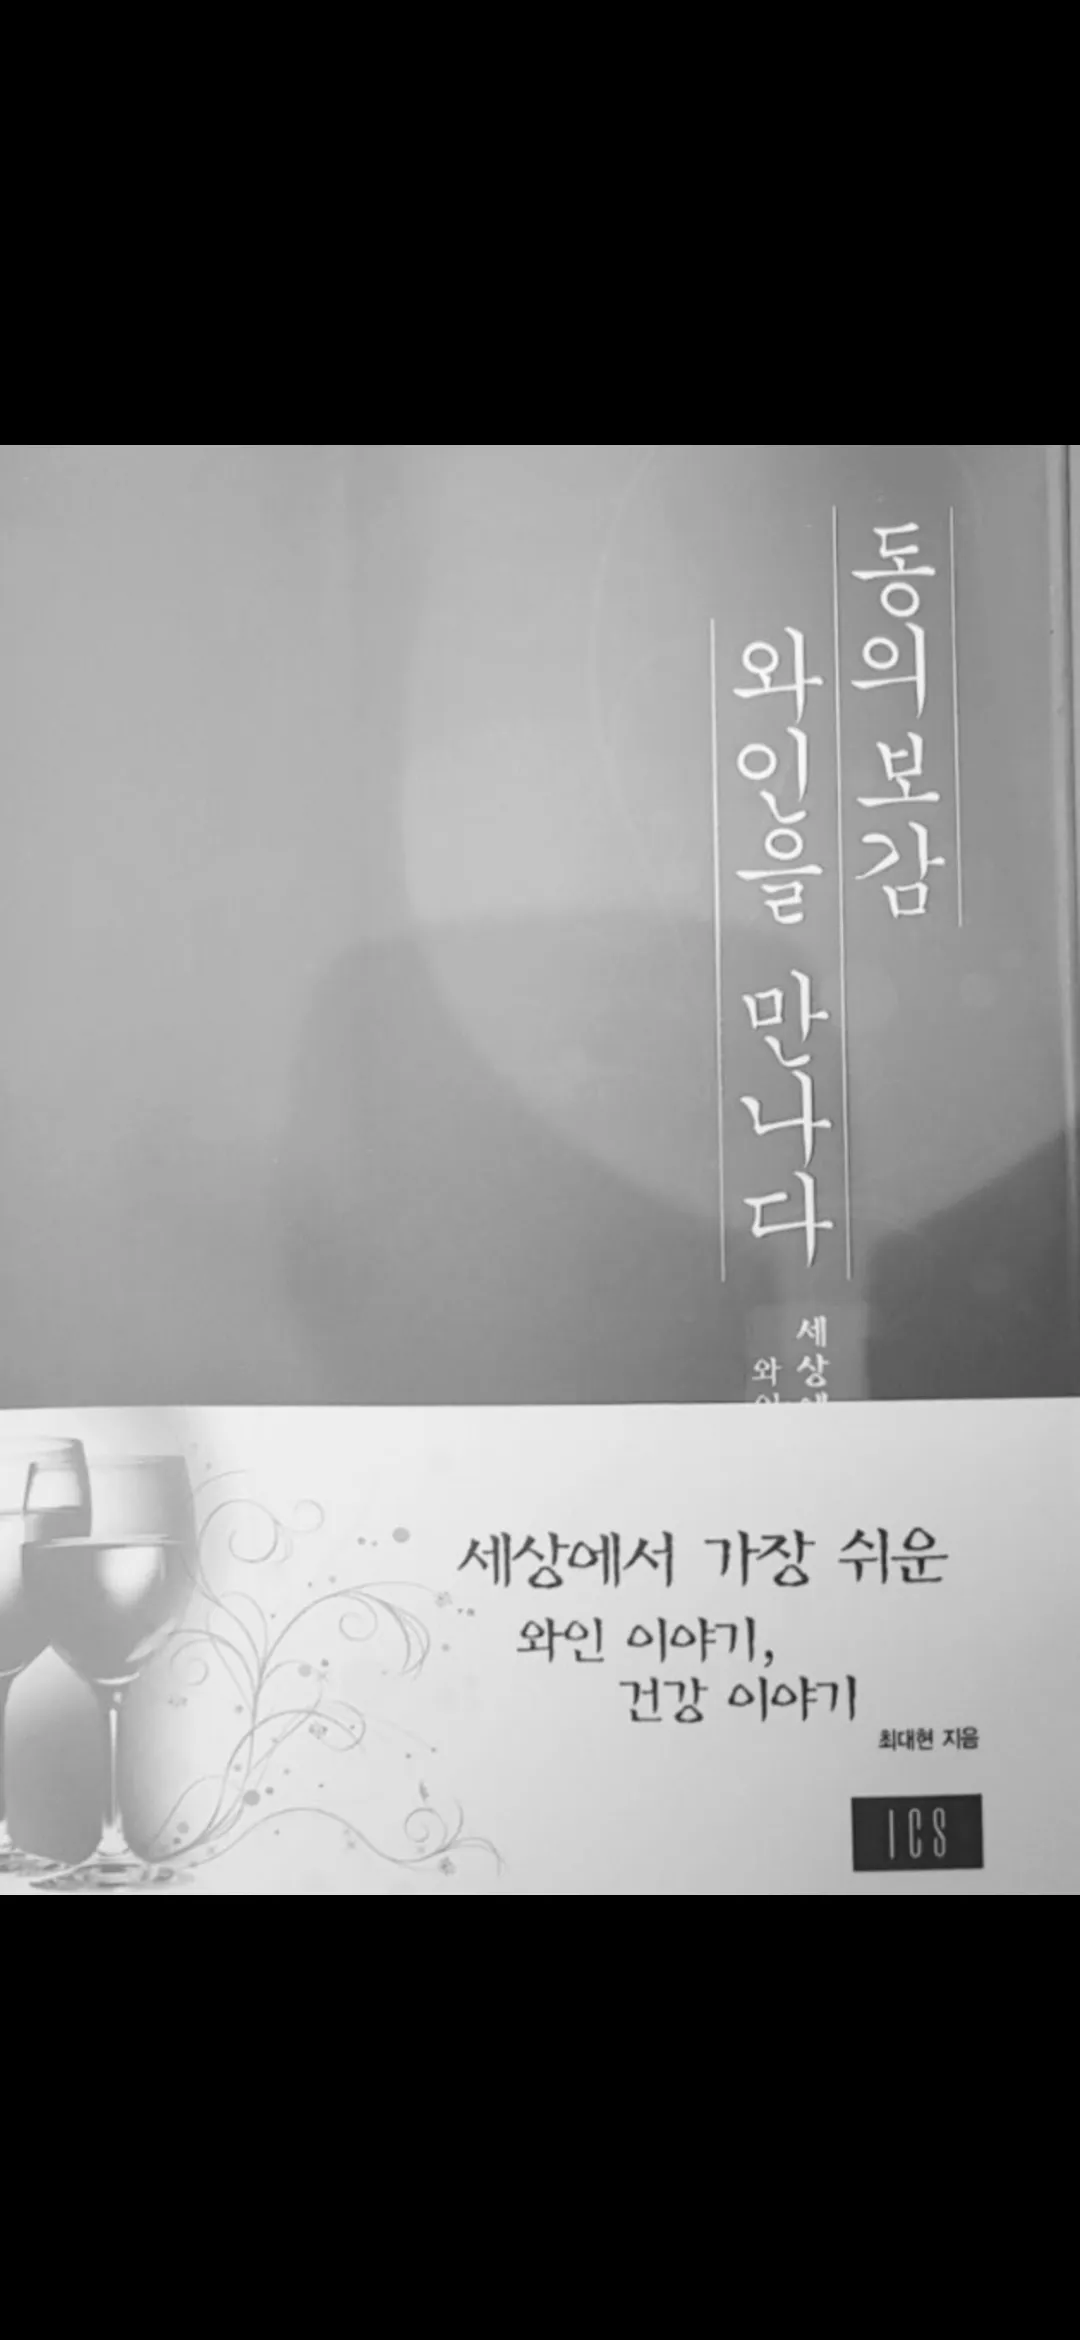 동의보감
와인을 만나다
세상에
와인
세상에서 가장 쉬운
와인 이야기,
건강 이야기
최대현 지음
ICS